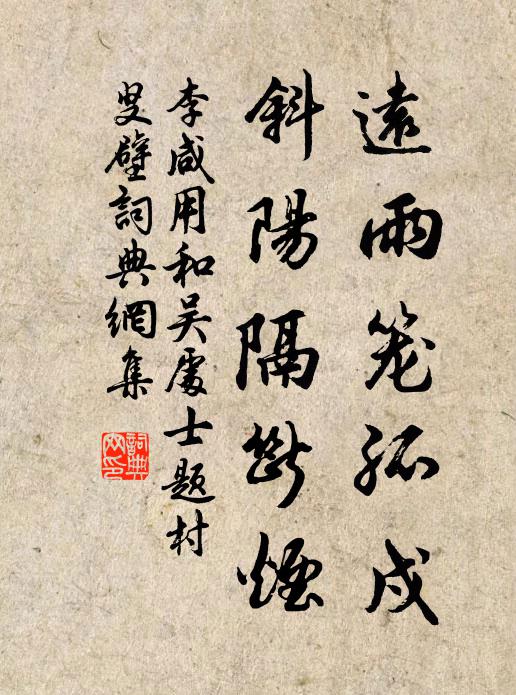 遠雨笼孤戍
斜陽隔斷煙
李咸用和吴處士題村
叟壁詞典網集
詞典网印